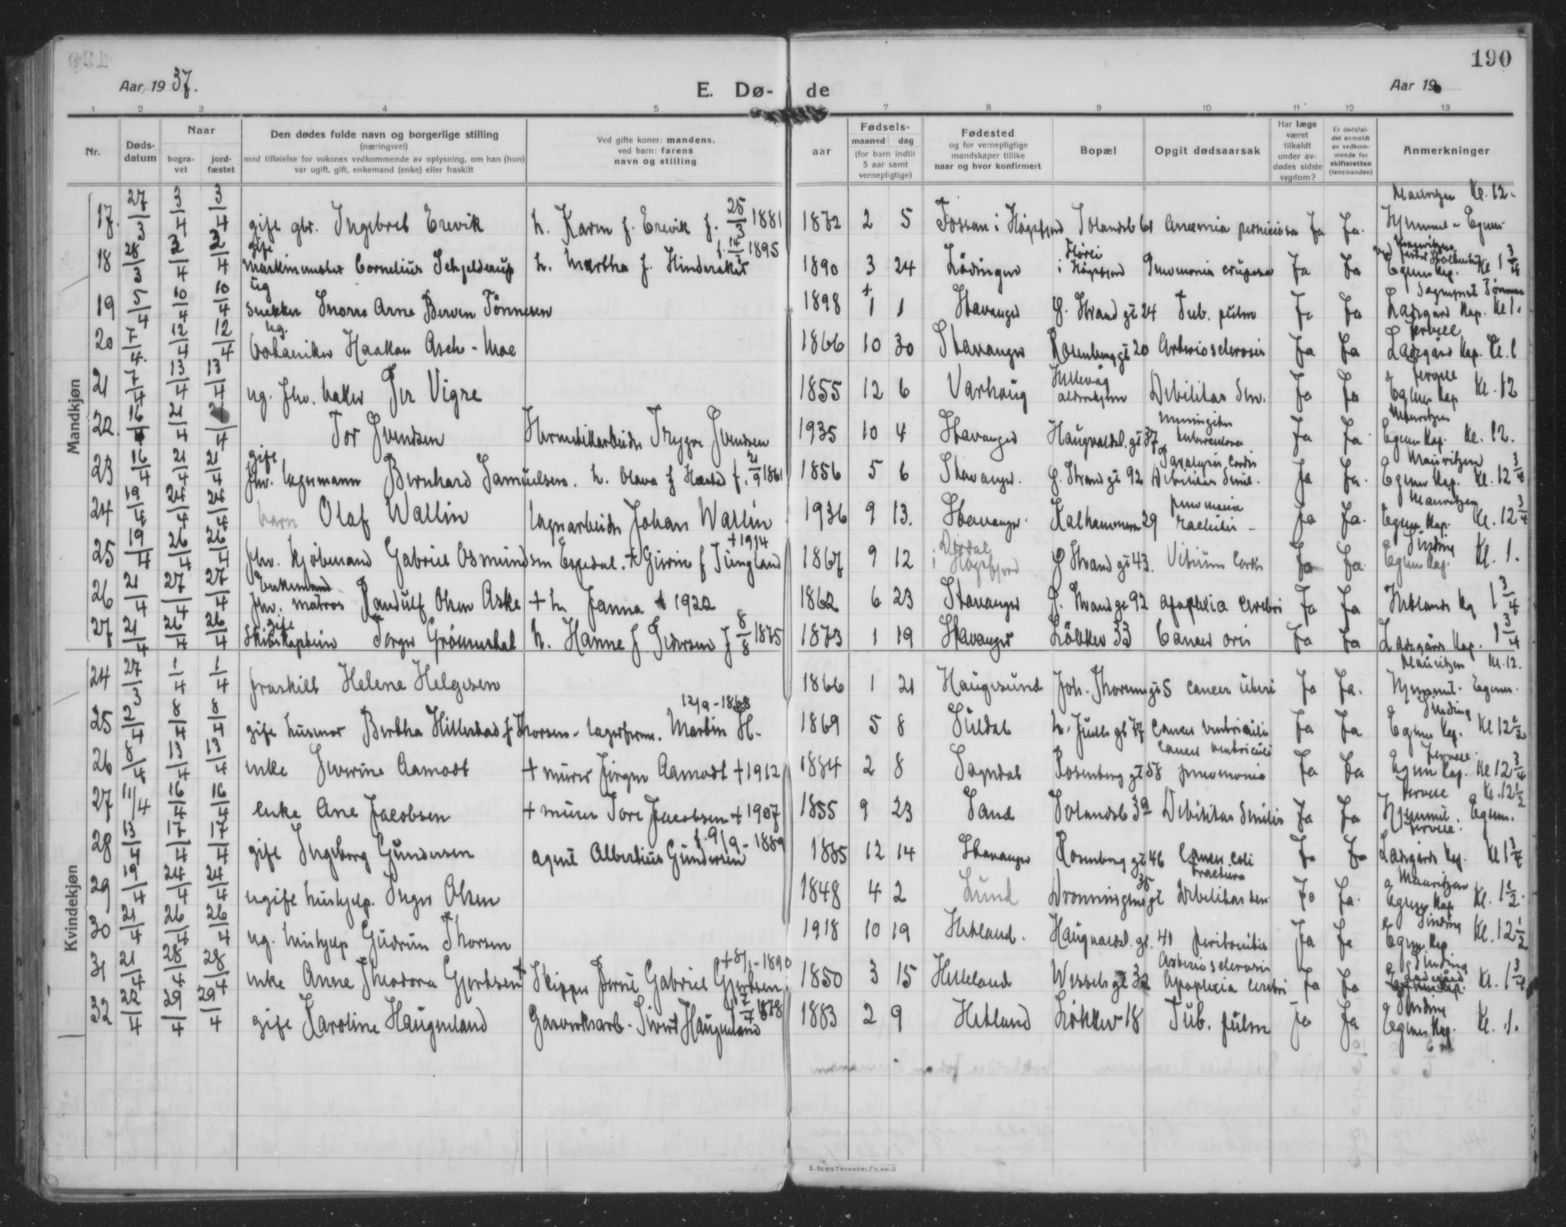 190
Aar 1937.
E. Dø-de
Aar 19
1 2 3 4 5 7 8 9 10 11 12 13
Nr.
Døds-datum
Naar
begra-vet
jord-fæstet
Den dødes fulde navn og borgerlige stilling
(næringsvei)
med tilføielse for voksnes vedkommende av oplysning, om han (hun)
var ugift, gift, enkemand (enke) eller fraskilt
Ved gifte koner: mandens,
ved barn: farens
navn og stilling
Fødsels-
aar
maaned dag
(for barn indtil 5 aar samt vernepligtige)
Fødested
og for vernepligtige
mandskaper tillike
naar og hvor konfirmert
Bopæl
Opgit dødsaarsak
Har læge været tilkaldt under av-dødes sidste sygdom?
Er dødsfal-det anmeldt av vedkom-mende for skifteretten (lensmanden)
Anmerkninger
Mandkjøn
17. 27/3 3/4 3/4 gift gbr. Ingebret Erevik h. Karen f. Erevik f. 25/3 1881 1872 2 5 Fossan i Høgsfjord Solandsb 61 Anæmia perniciosa Ja Ja. Mauritzen Kl. 12.
18 28/3 2/4 2/4 gift maskinmester Cornelius Schjelderup h. Martha f. 1895 1890 3 24 Lødingen i Høgsfjord Pneumonia cruposa Ja Ja Egenes Kap. Kl 1 3/4
19 5/4 10/4 10/4 ug snekker Snorre Arne Berven Tønnesen 1898 1 1 Stavanger Ø. Strand gt 24 Tub. pulm Ja Ja Ladegård Kap. Kl 1.
20 7/4 12/4 12/4 ug. botaniker Haakon Asche-Moe 1866 10 30 Stavanger Rosenberg gt 20 Arteriosclerosis Ja Ja Ladegård Kap. Kl. 1
21 7/4 13/4 13/4 ug. fhv. baker Per Vigre 1855 12 6 Varhaug Hillevåg aldershjem Debilitas Sen. Ja Ja Egenes Kap Kl. 12
22. 16/4 21/4 21/4 Tor Svendsen Hermetikarbeider Trygve Svendsen 1935 10 4 Stavanger Haugvaldst. gt 37 Meningitis tuberculosa Ja Ja Mauritzen Egenes Kap. Kl. 12.
23 16/4 21/4 21/4 gift fhv. lagermann Bernhard Samuelsen. h. Olava f 21/9 1861 1856 5 6 Stavanger. Ø. Strand gt 92 Paralysis Cordis Debilitas Senil. Ja Ja. Mauritzen Egenes Kap. Kl. 12 3/4
24 19/4 24/4 24/4 barn Olaf Wallin lagerarbeider Johan Wallin 1936 9 13. Stavanger. Kalhammern 29 pneumonia rachitis - Ja Ja. Mauritzen Egenes Kap. Kl. 12 3/4
25 19/4 26/4 26/4 fhv. kjøbmand Gabriel Osmundsen Espedal. + Gurine f Tungland + 1914 1867 9 12 i Høgsfjord Ø Strand gt 43. Vitium Cordis Ja Ja Sinding Egenes Kap. Kl. 1.
26 21/4 27/4 27/4 Enkemand fhv. matros Randulf Olsen Aske + h Janna + 1922 1862 6 23 Stavanger Ø. Strand gt 92 apoplexia cerebri Ja Ja Hetlands Kg 1 3/4
27 21/4 26/4 26/4 gift Skibskaptein Torger Grønnestad h. Hanne f Gudersen f 8/8 1875 1873 1 19 Stavanger Løkkev 33 Cancer oris Ja Ja Ladegårds Kap. 1 3/4
Kvindekjøn
24 27/3 1/4 1/4 fraskilt Helene Helgesen 1866 1 21 Haugesund Joh. Thorsens gt 5 cancer uteri Ja Ja. Mauritzen Kl. 12.
25 2/4 8/4 8/4 gift husmor Bertha Hillestad f Thorsen - lagerform. Martin H. 12/9 - 1868 1869 5 8 Suldal cancer ventriculi Ja Ja Sinding Egenes Kap. Kl 12 1/2
26 8/4 13/4 13/4 enke Severine Aamodt + murer Jørgen Aamodt + 1912 1884 2 8 Sogndal Rosenberg gt 58 cancer ventriculi pneumonia Ja Ja Egenes Kap. Kl 12 3/4
27 11/4 16/4 16/4 enke Ane Jacobsen + murer Tore Jacobsen + 1907 1855 9 23 Sand Solandsb 32 Debilitas Senilis Ja Ja Kl. 12 1/2
28 13/4 17/4 17/4 gift Ingeborg Gundersen agent Albertius Gundersen f. 9/9 - 1889 1885 12 14 Stavanger Rosenberg gt 46 Cancer coli Ja Ja Ladegårds Kap. Kl 1 3/4
29 19/4 24/4 24/4 ugift hushjelp. Inger Olsen 1848 4 2 Lund Dronningens gt 38 Fractura Debilitas sen Ja Ja. Mauritzen Egenes Kap Kl. 1 1/2.
30 21/4 26/4 26/4 ug. hushjelp Gudrun Thorsen 1918 10 19 Hetland. Haugvaldst. gt. 41 peritonitis Ja Ja Sinding Egenes Kap Kl. 12 1/2
31 21/4 28/4 28/4 enke Anne Theodora Gjertsen + Skipper Gabriel Gjertsen. + 8/1 - 1890 1850 3 15 Helleland Wessels gt 32 Arteriosclerosis Apoplexia cerebri Ja Ja Sinding Kl. 1 3/4
32 22/4 29/4 29/4 gift Karoline Haugenland Gasverksarb. Sivert Haugenland 1878 1883 2 9 Hetland Løkkev 18 Tub. pulm Ja Ja Sinding Egenes Kap. Kl. 1.